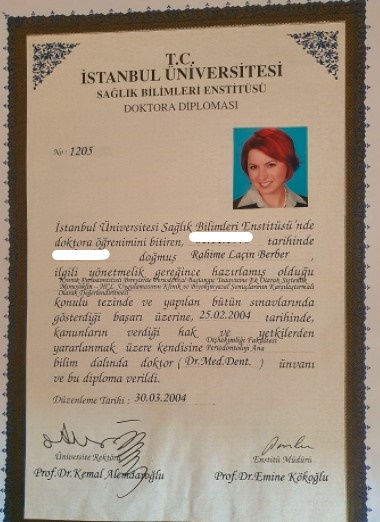 T.C.
İSTANBUL ÜNİVERSİTESİ
SAĞLIK BİLİMLERİ ENSTİTÜSÜ
DOKTORA DİPLOMASI
No: 1205
İstanbul Üniversitesi Sağlık Bilimleri Enstitüsü'nde
doktora öğrenimini bitiren, tarihinde
doğmuş Rahime Laçin Berber ,
ilgili yönetmelik gereğince hazırlamış olduğu
konulu tezinde ve yapılan bütün sınavlarında
gösterdiği başarı üzerine, 25.02.2004 tarihinde,
kanunların verdiği hak ve yetkilerden
yararlanmak üzere kendisine Dişhekimliği Fakültesi Periodontoloji Ana
bilim dalında doktor (Dr.Med.Dent. ) ünvanı
ve bu diploma verildi.
Düzenleme Tarihi : 30.03.2004
Üniversite Rektörü
Prof.Dr.Kemal Alemdaroğlu
Enstitü Müdürü
Prof.Dr.Emine Kökoğlu